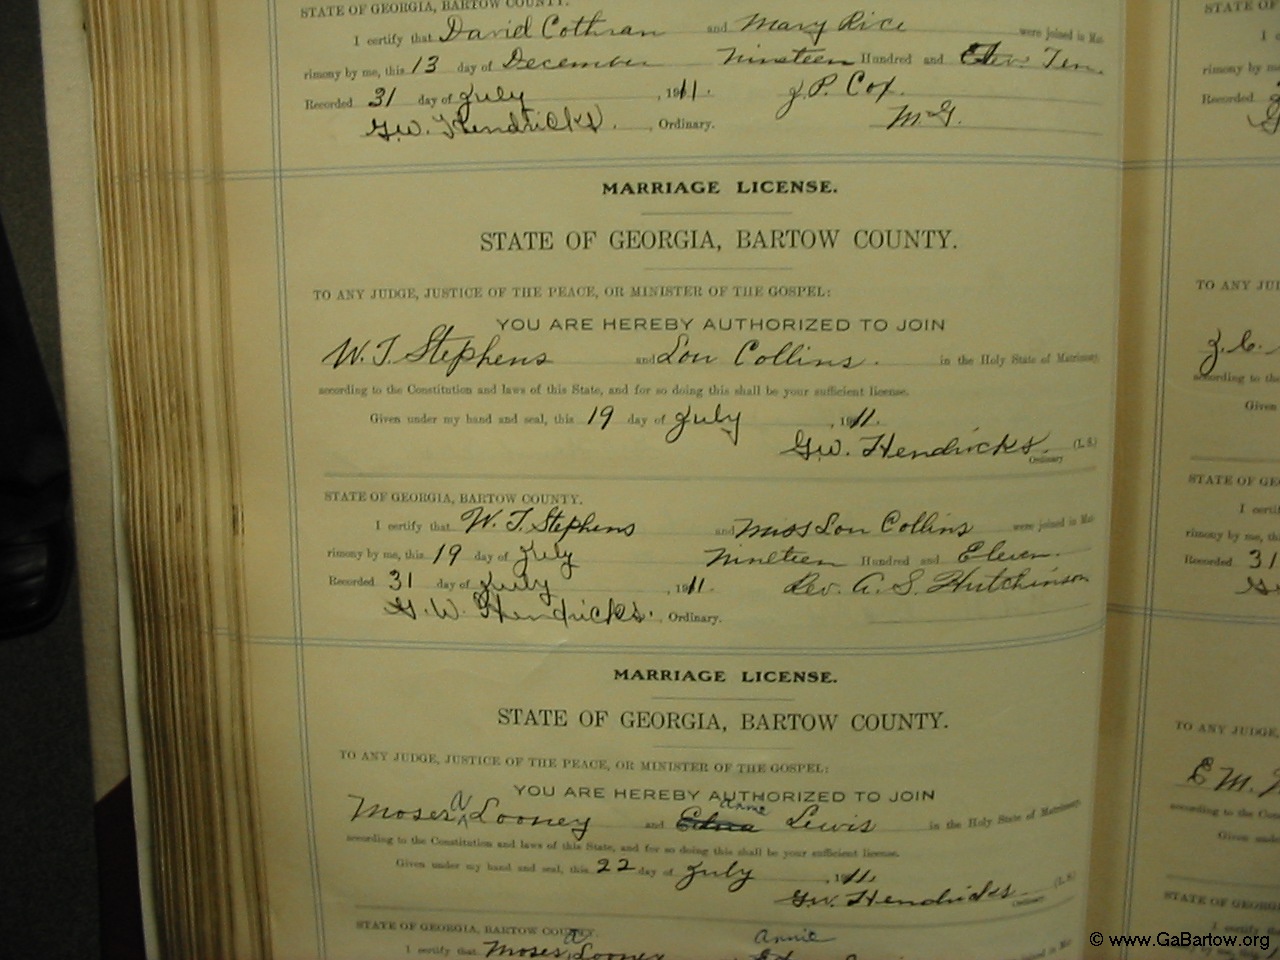 STATE OF GEORGIA, BARTOW COUNTY.
I certify that David Cothran and Mary Rice were joined in Mat-
rimony by me, this 13 day of December Nineteen Hundred and Ten.
Recorded 31 day of July, 1911. J. P. Cox.
G.W. Hendricks. , Ordinary. M.G.
MARRIAGE LICENSE.
STATE OF GEORGIA, BARTOW COUNTY.
TO ANY JUDGE, JUSTICE OF THE PEACE, OR MINISTER OF THE GOSPEL:
YOU ARE HEREBY AUTHORIZED TO JOIN
W. T. Stephens and Lou Collins. in the Holy State of Matrimony
according to the Constitution and laws of this State, and for so doing this shall be your sufficient license.
Given under my hand and seal, this 19 day of July, 1911.
G.W. Hendricks. (L. S.)
Ordinary
STATE OF GEORGIA, BARTOW COUNTY.
I certify that W. T. Stephens and Miss Lou Collins were joined in Mat-
rimony by me, this 19 day of July Nineteen Hundred and Eleven.
Recorded 31 day of July, 1911. Rev. A. S. Hutchinson
G. W. Hendricks. , Ordinary.
MARRIAGE LICENSE.
STATE OF GEORGIA, BARTOW COUNTY.
TO ANY JUDGE, JUSTICE OF THE PEACE, OR MINISTER OF THE GOSPEL:
YOU ARE HEREBY AUTHORIZED TO JOIN
Moser A Looney and Edna Annie Lewis in the Holy State of Matrimony
according to the Constitution and laws of this State, and for so doing this shall be your sufficient license.
Given under my hand and seal, this 22 day of July, 1911.
G.W. Hendricks (L. S.)
Ordinary
STATE OF GEORGIA, BARTOW COUNTY.
I certify that Moser A Looney Annie
STATE OF
rimony by me
Recorded
TO ANY JUD
J. C.
according to the
Given
STATE OF GE
I certif
rimony by me, th
Recorded 31
TO ANY JUDGE,
E M.
according to the Con
Given unde
STATE OF GEORG
I certify
© www.GaBartow.org